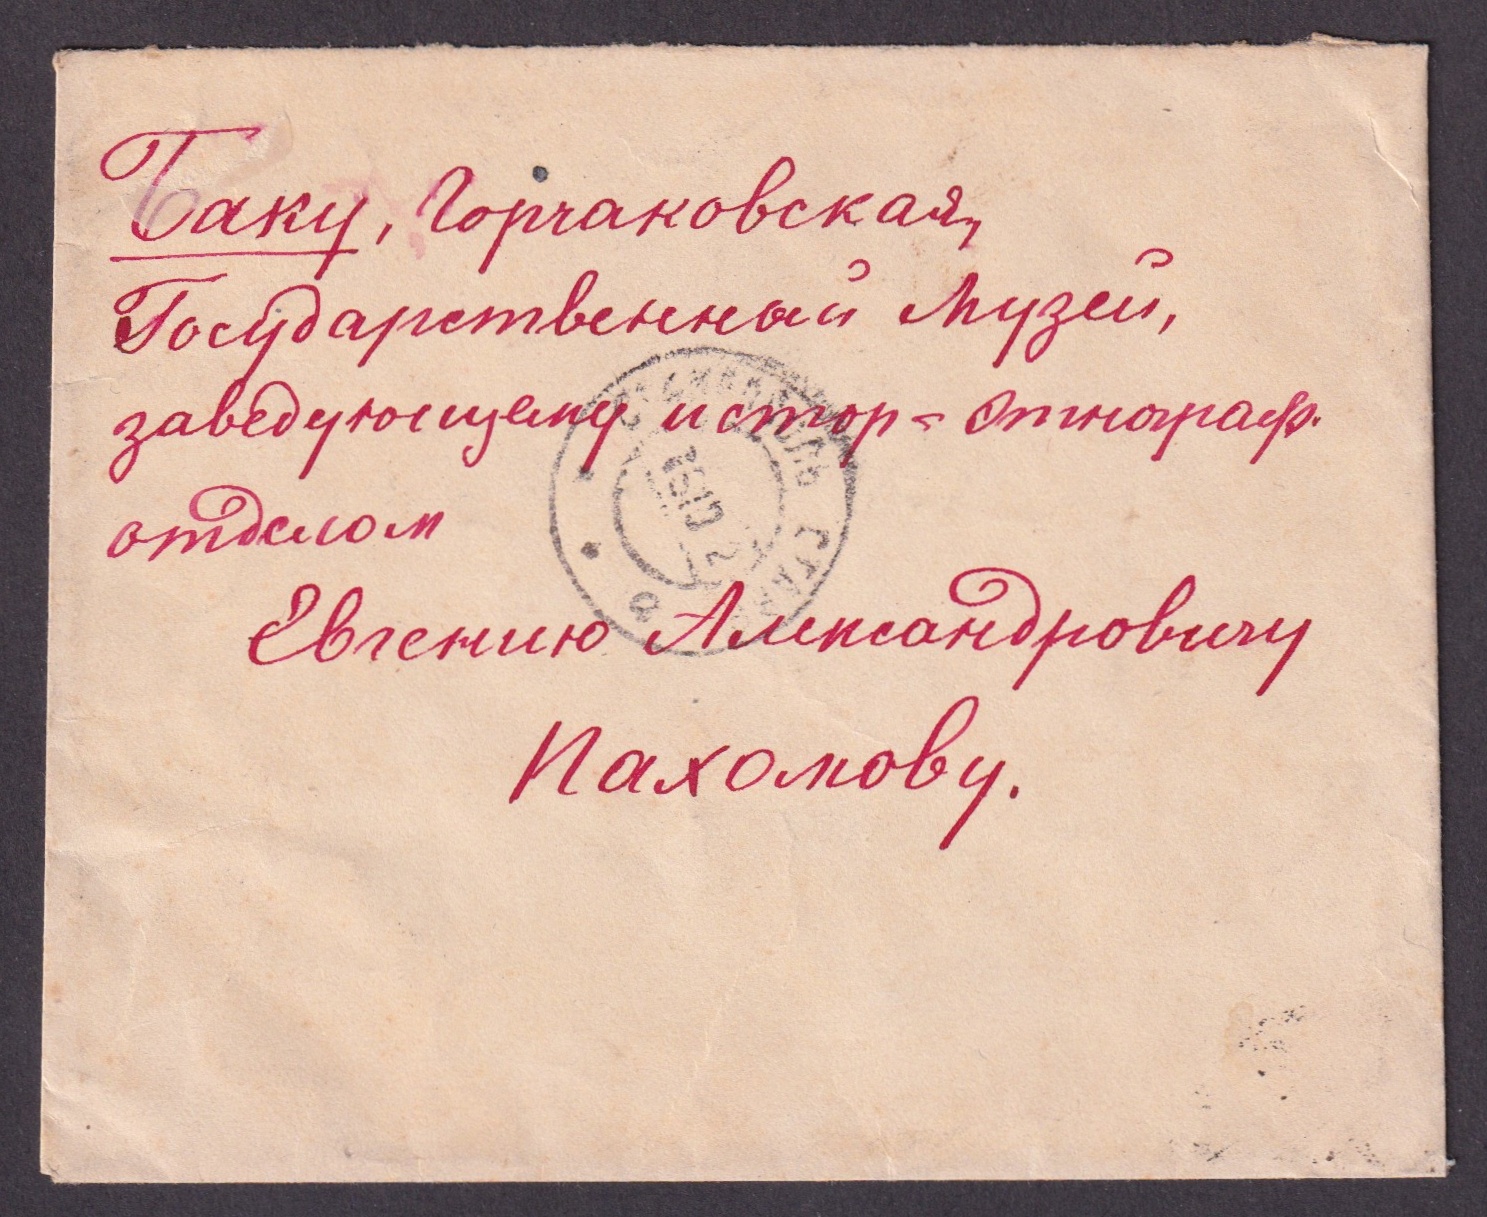 Баку, Горчаковская,
Государственный Музей,
заведующему истор-этнограф.
отделом
Евгению Александровичу
Пахомову.